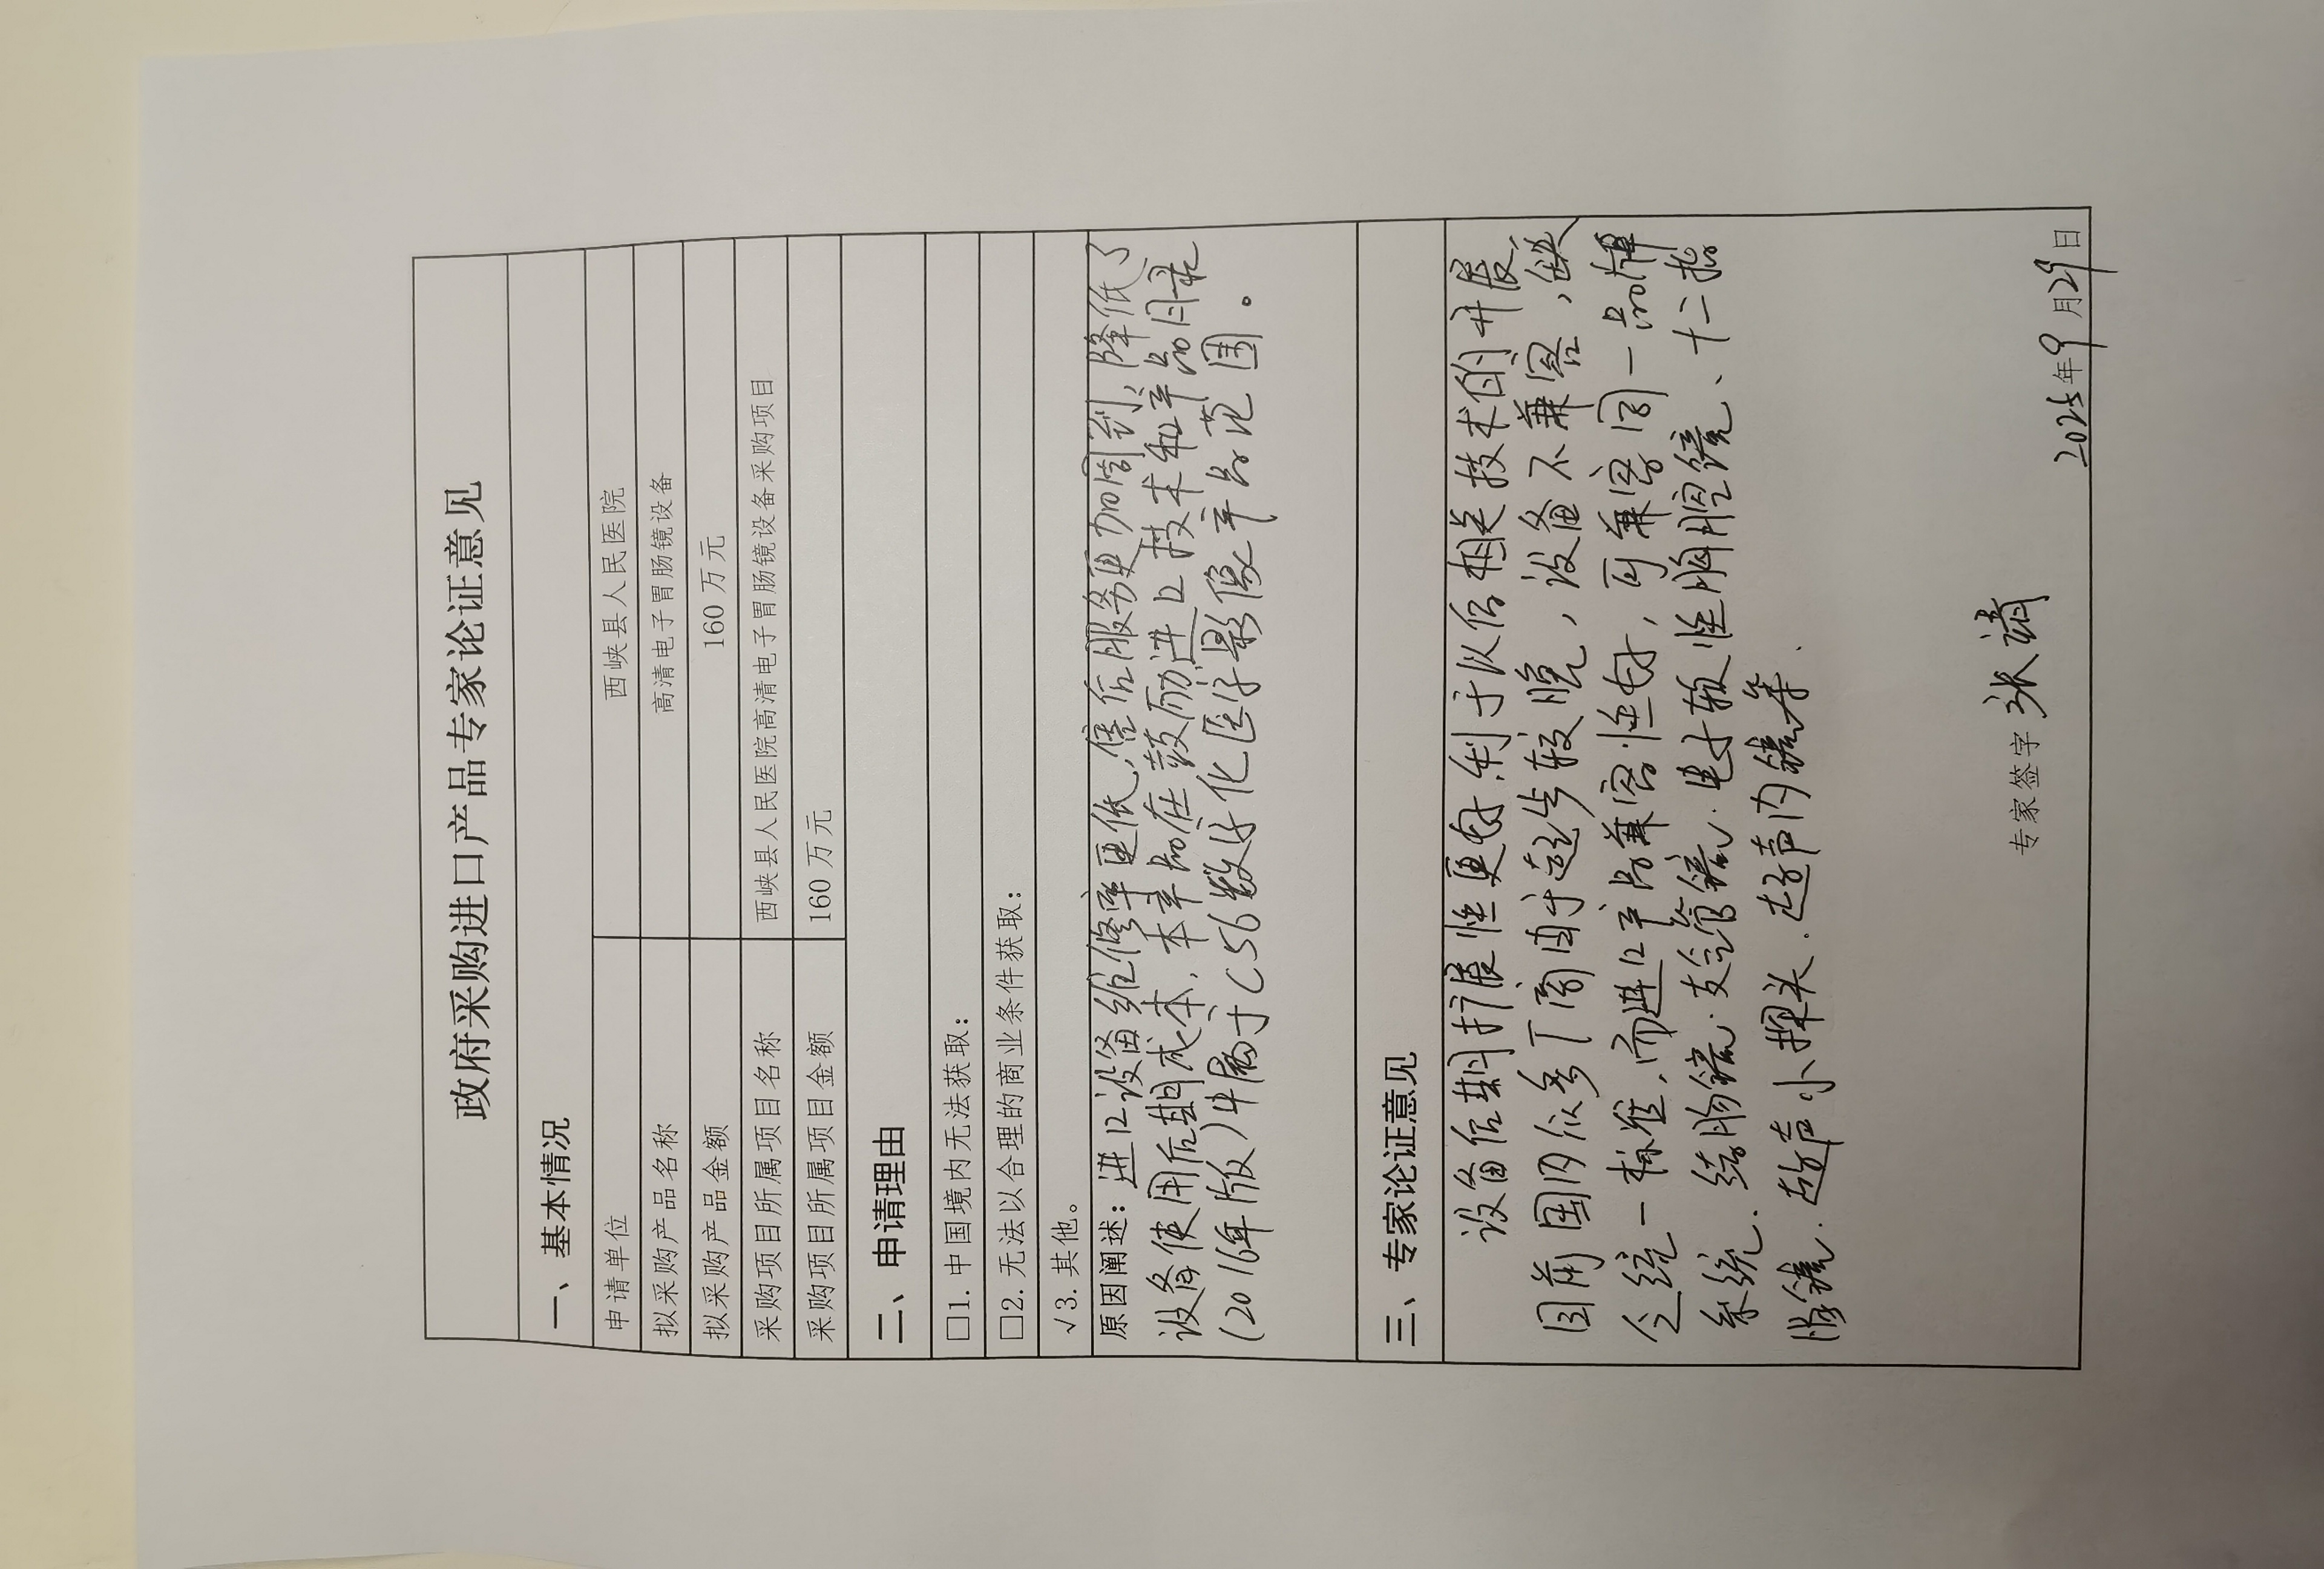 政府采购进口产品专家论证意见
一、基本情况
申请单位 西峡县人民医院
拟采购产品名称 高清电子胃肠镜设备
拟采购产品金额 160万元
采购项目所属项目名称 西峡县人民医院高清电子胃肠镜设备采购项目
采购项目所属项目金额 160万元
二、申请理由
□1. 中国境内无法获取：
□2. 无法以合理的商业条件获取：
√3. 其他。
原因阐述：进口设备维修率更低，售后服务更加周到，降低了
设备使用后期成本，本产品在鼓励进口技术和产品目录
（2016年版）中属于C56数字化医疗影像产品范围。
三、专家论证意见
设备后期扩展性更好，利于以后相关技术的开展，
目前国内众多厂商由于起步较晚，设备不兼容，缺
乏统一标准，而进口产品兼容性好，可兼容同一品牌
系统、结肠镜、支气管镜、电子软性胸腔镜、十二指
肠镜、超声小探头、超声内镜等、
专家签字
2025年9月29日